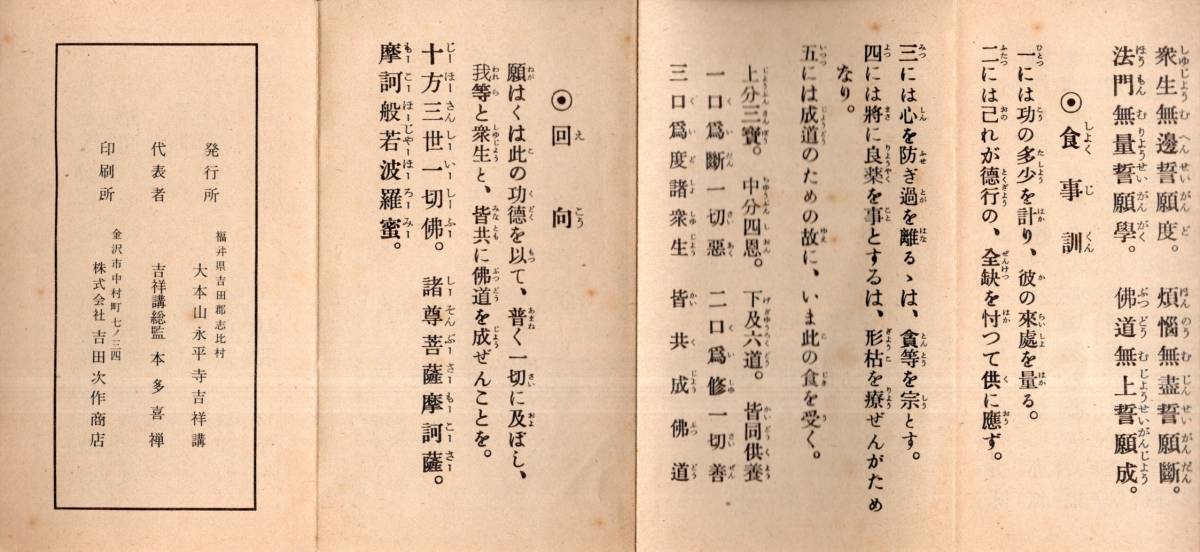 衆生無邊誓願度。　煩惱無盡誓願斷。
法門無量誓願學。　佛道無上誓願成。
◉食事訓
一には功の多少を計り、彼の來處を量る。
二には己れが德行の、全缺を忖つて供に應ず。
三には心を防ぎ過を離るゝは、貪等を宗とす。
四には將に良藥を事とするは、形枯を療ぜんがため
なり。
五には成道のための故に、いま此の食を受く。
上分三寶。　中分四恩。　下及六道。　皆同供養
一口爲斷一切惡　二口爲修一切善
三口爲度諸衆生　皆共成佛道
◉回向
願はくは此の功德を以て、普く一切に及ぼし、
我等と衆生と、皆共に佛道を成ぜんことを。
十方三世一切佛。　諸尊菩薩摩訶薩。
摩訶般若波羅蜜。
福井県吉田郡志比村
発行所　大本山永平寺吉祥講
代表者　吉祥講総監　本多喜禅
金沢市中村町七ノ三四
印刷所　株式会社　吉田次作商店